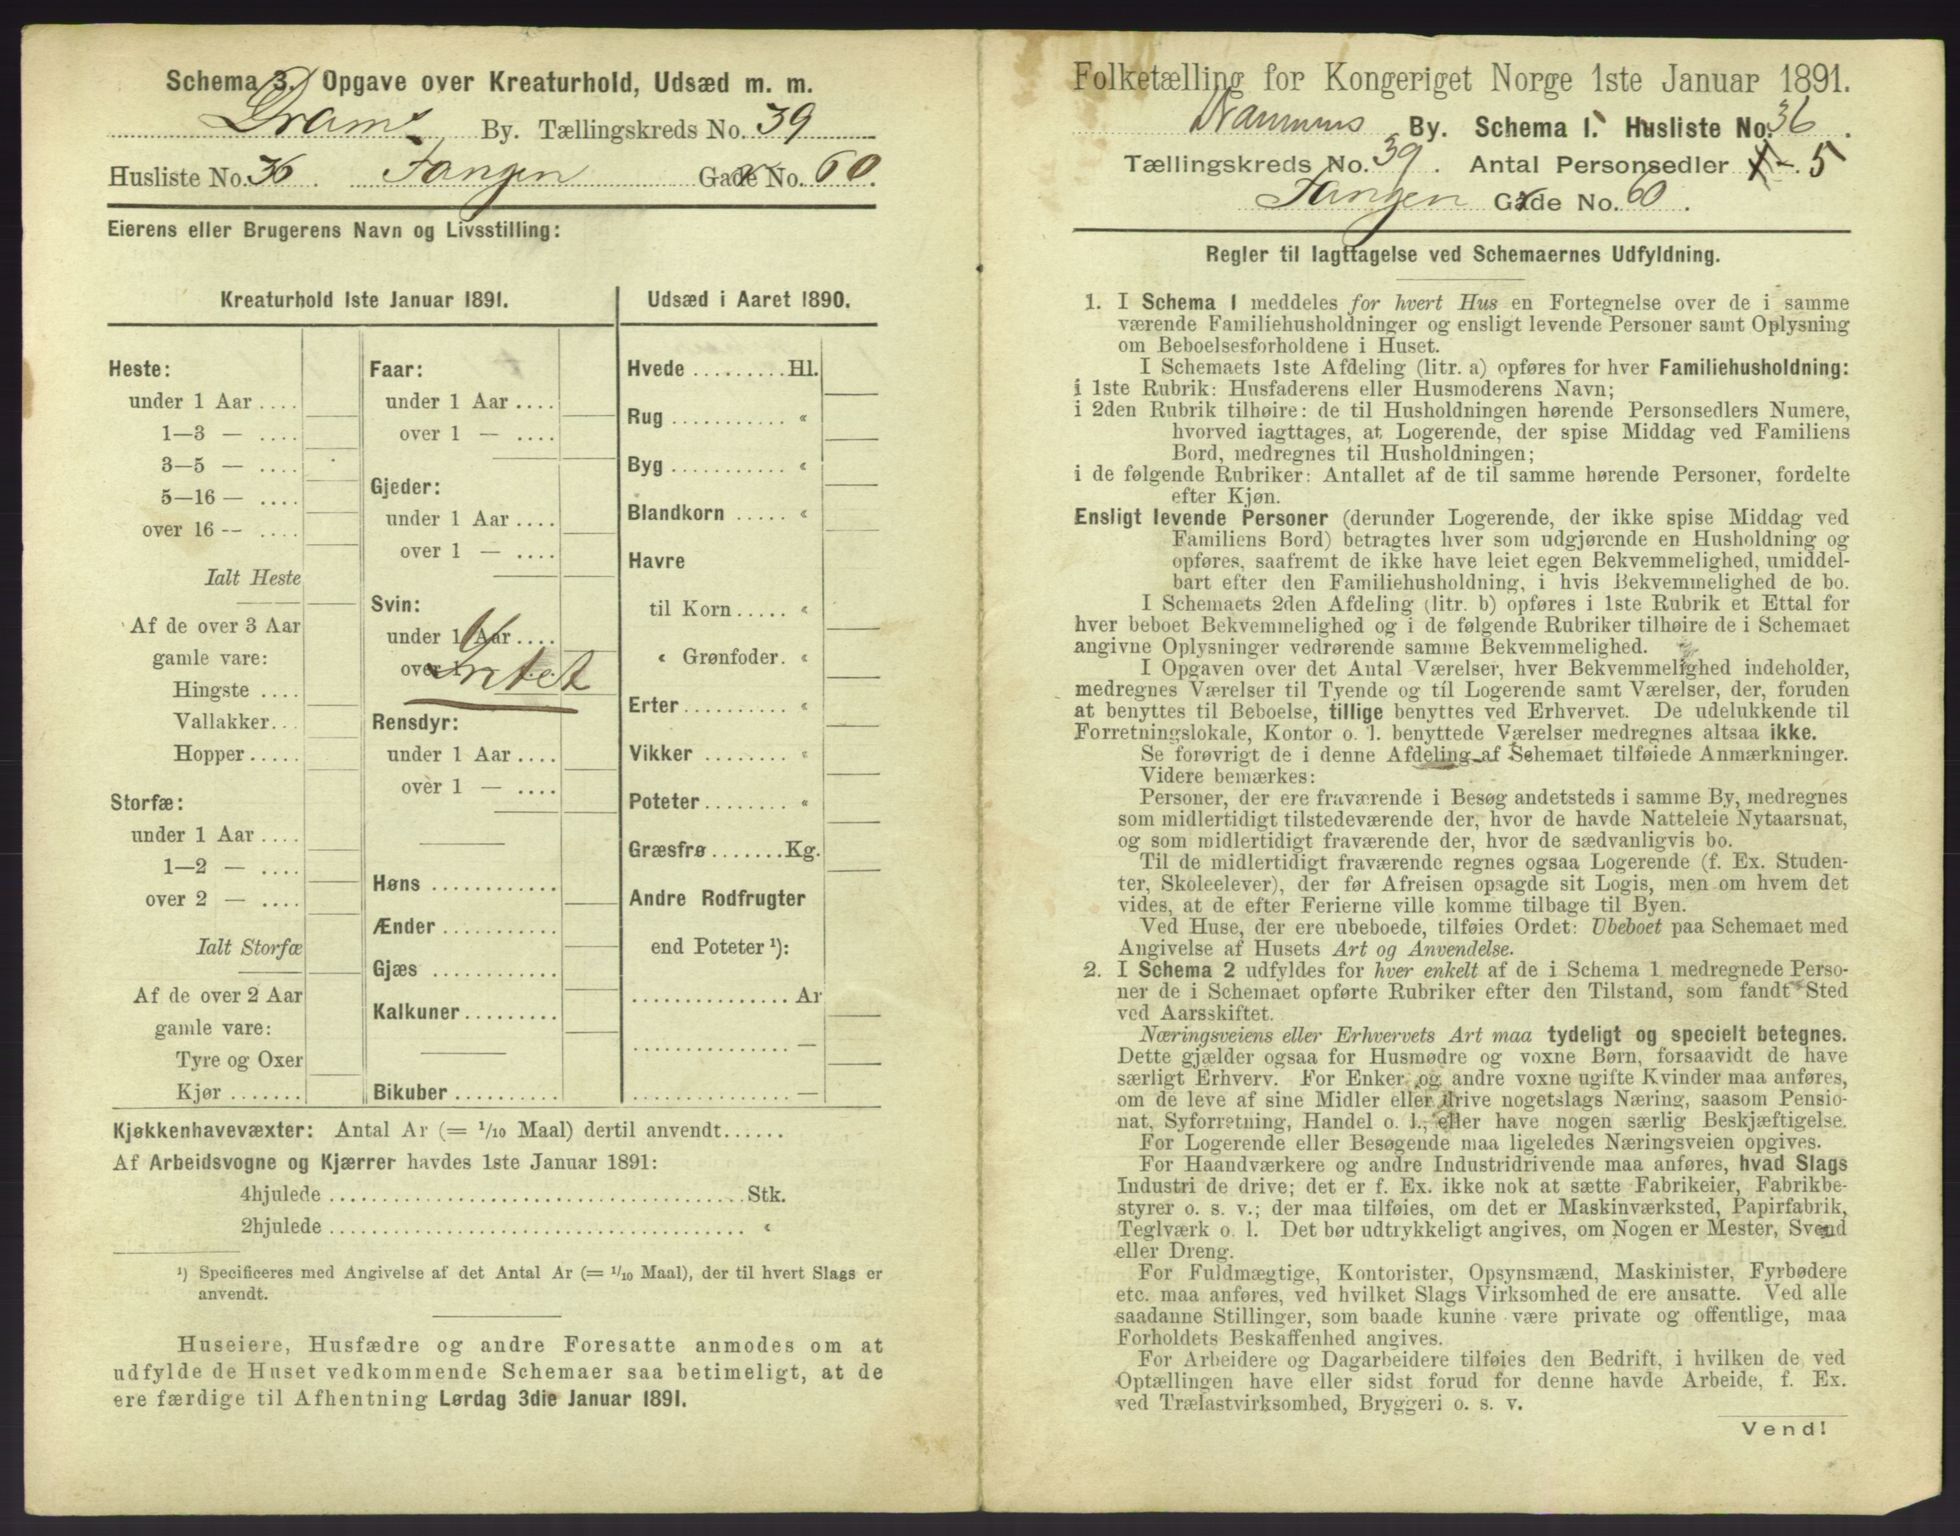 Schema 3. Opgave over Kreaturhold, Udsæd m. m.
Drams By. Tællingskreds No. 39
Husliste No. 36. Tangen Gade No. 60.
Eierens eller Brugerens Navn og Livsstilling:
Kreaturhold 1ste Januar 1891.
Heste:
under 1 Aar ....
1—3 — ....
3—5 — ....
5—16 — ....
over 16 -- ....
Ialt Heste
Af de over 3 Aar
gamle vare:
Hingste ....
Vallakker...
Hopper.....
Storfæ:
under 1 Aar ....
1—2 — ....
over 2 — ....
Ialt Storfæ
Af de over 2 Aar
gamle vare:
Tyre og Oxer
Kjør .......
Faar:
under 1 Aar ....
over 1 — ....
Gjeder:
under 1 Aar ....
over 1 — ....
Svin:
under 1 Aar....
over
Intet
Rensdyr:
under 1 Aar ....
over 1 — ....
Høns ............
Ænder ...........
Gjæs ............
Kalkuner.........
Bikuber..........
Udsæd i Aaret 1890.
Hvede .........Hl.
Rug ........... «
Byg ........... «
Blandkorn ..... «
Havre
til Korn..... «
« Grønfoder. «
Erter.......... «
Vikker ........ «
Poteter........ «
Græsfrø.......Kg.
Andre Rodfrugter
end Poteter ¹):
............... Ar
............... —
............... —
Kjøkkenhavevæxter: Antal Ar (= 1/10 Maal) dertil anvendt......
Af Arbeidsvogne og Kjærrer havdes 1ste Januar 1891:
4hjulede ........................................ Stk.
2hjulede ........................................ «
¹) Specificeres med Angivelse af det Antal Ar (= 1/10 Maal), der til hvert Slags er
anvendt.
Huseiere, Husfædre og andre Foresatte anmodes om at
udfylde de Huset vedkommende Schemaer saa betimeligt, at de
ere færdige til Afhentning Lørdag 3die Januar 1891.
Folketælling for Kongeriget Norge 1ste Januar 1891.
Drammens By. Schema 1. Husliste No. 36.
Tællingskreds No. 39. Antal Personsedler 5
Tangen Gade No. 60.
Regler til Iagttagelse ved Schemaernes Udfyldning.
1. I Schema 1 meddeles for hvert Hus en Fortegnelse over de i samme
værende Familiehusholdninger og ensligt levende Personer samt Oplysning
om Beboelsesforholdene i Huset.
I Schemaets 1ste Afdeling (litr. a) opføres for hver Familiehusholdning:
i 1ste Rubrik: Husfaderens eller Husmoderens Navn;
i 2den Rubrik tilhøire: de til Husholdningen hørende Personsedlers Numere,
hvorved iagttages, at Logerende, der spise Middag ved Familiens
Bord, medregnes til Husholdningen;
i de følgende Rubriker: Antallet af de til samme hørende Personer, fordelte
efter Kjøn.
Ensligt levende Personer (derunder Logerende, der ikke spise Middag ved
Familiens Bord) betragtes hver som udgjørende en Husholdning og
opføres, saafremt de ikke have leiet egen Bekvemmelighed, umiddel-
bart efter den Familiehusholdning, i hvis Bekvemmelighed de bo.
I Schemaets 2den Afdeling (litr. b) opføres i 1ste Rubrik et Ettal for
hver beboet Bekvemmelighed og i de følgende Rubriker tilhøire de i Schemaet
angivne Oplysninger vedrørende samme Bekvemmelighed.
I Opgaven over det Antal Værelser, hver Bekvemmelighed indeholder,
medregnes Værelser til Tyende og til Logerende samt Værelser, der, foruden
at benyttes til Beboelse, tillige benyttes ved Erhvervet. De udelukkende til
Forretningslokale, Kontor o. l. benyttede Værelser medregnes altsaa ikke.
Se forøvrigt de i denne Afdeling af Schemaet tilføiede Anmærkninger.
Videre bemærkes:
Personer, der ere fraværende i Besøg andetsteds i samme By, medregnes
som midlertidigt tilstedeværende der, hvor de havde Natteleie Nytaarsnat,
og som midlertidigt fraværende der, hvor de sædvanligvis bo.
Til de midlertidigt fraværende regnes ogsaa Logerende (f. Ex. Studen-
ter, Skoleelever), der før Afreisen opsagde sit Logis, men om hvem det
vides, at de efter Ferierne ville komme tilbage til Byen.
Ved Huse, der ere ubeboede, tilføies Ordet: Ubeboet paa Schemaet med
Angivelse af Husets Art og Anvendelse.
2. I Schema 2 udfyldes for hver enkelt af de i Schema 1 medregnede Perso-
ner de i Schemaet opførte Rubriker efter den Tilstand, som fandt Sted
ved Aarsskiftet.
Næringsveiens eller Erhvervets Art maa tydeligt og specielt betegnes.
Dette gjælder ogsaa for Husmødre og voxne Børn, forsaavidt de have
særligt Erhverv. For Enker og andre voxne ugifte Kvinder maa anføres,
om de leve af sine Midler eller drive nogetslags Næring, saasom Pensio-
nat, Syforretning, Handel o. l., eller have nogen særlig Beskjæftigelse.
For Logerende eller Besøgende maa ligeledes Næringsveien opgives.
For Haandværkere og andre Industridrivende maa anføres, hvad Slags
Industri de drive; det er f. Ex. ikke nok at sætte Fabrikeier, Fabrikbe-
styrer o. s. v.; der maa tilføies, om det er Maskinværksted, Papirfabrik,
Teglværk o. l. Det bør udtrykkeligt angives, om Nogen er Mester, Svend
eller Dreng.
For Fuldmægtige, Kontorister, Opsynsmænd, Maskinister, Fyrbødere
etc. maa anføres, ved hvilket Slags Virksomhed de ere ansatte. Ved alle
saadanne Stillinger, som baade kunne være private og offentlige, maa
Forholdets Beskaffenhed angives.
For Arbeidere og Dagarbeidere tilføies den Bedrift, i hvilken de ved
Optællingen have eller sidst forud for denne havde Arbeide, f. Ex.
ved Trælastvirksomhed, Bryggeri o. s. v.
Vend!